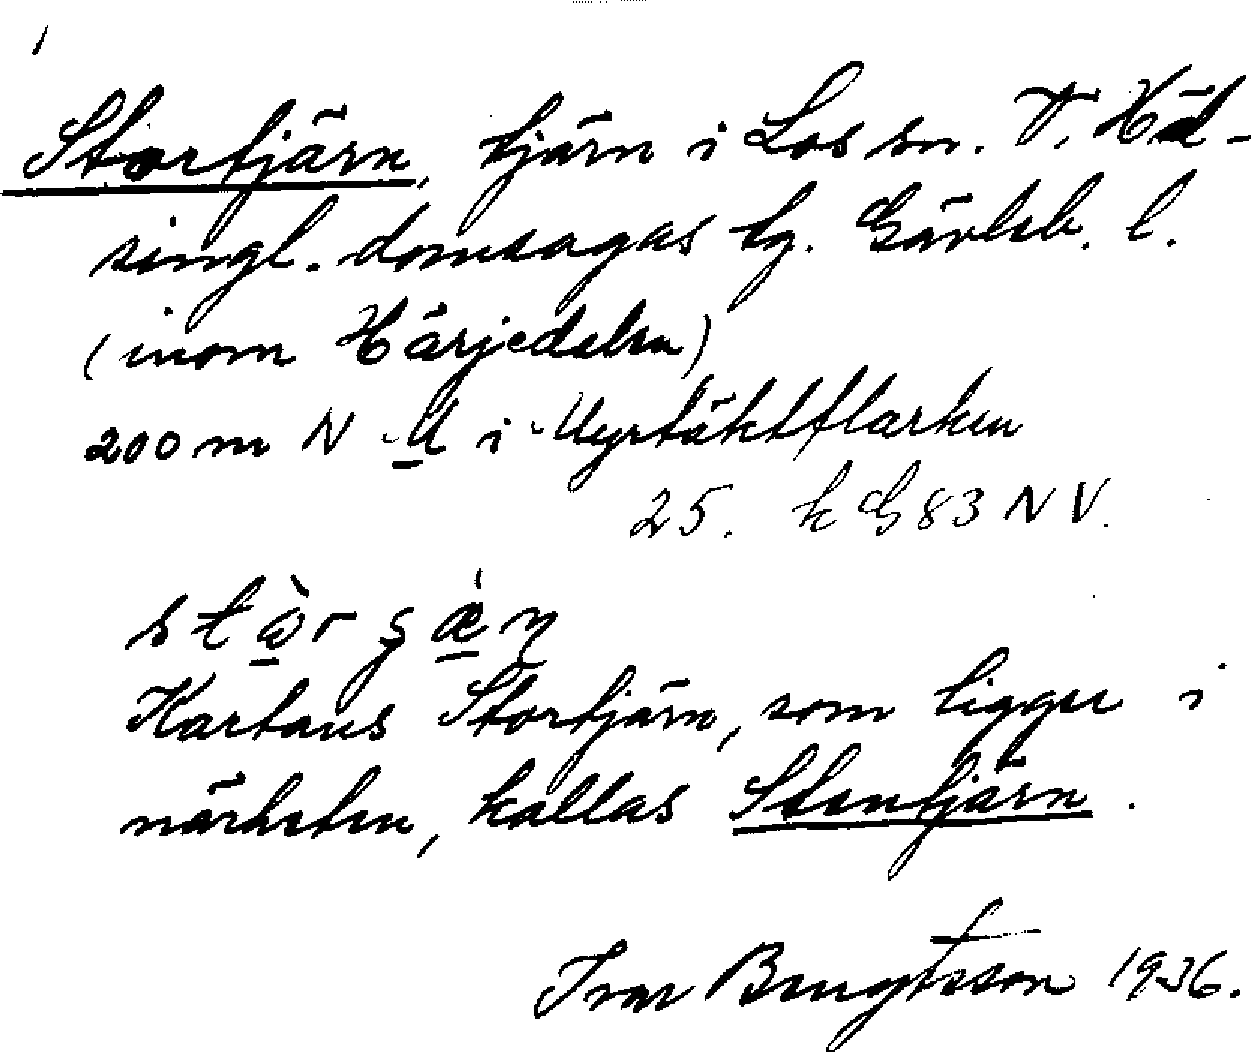 Stortjärn, tjärn i Los sn. V. Häl-
singl. domsagas tg. Gävleb. l.
(inom Härjedalen)
200 m N M i Myrtäktflarken
25. k G 83 NV.
Kartans Stortjärn, som ligger i
närheten, kallas Stentjärn.
Ivar Bengtsson 1936.